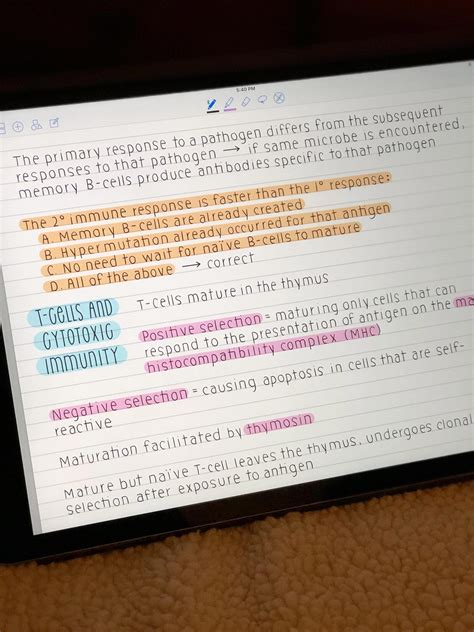 5:40 PM
The primary response to a pathogen differs from the subsequent
responses to that pathogen → if same microbe is encountered,
memory B-cells produce antibodies specific to that pathogen
The 2° immune response is faster than the 1° response:
A. Memory B-cells are already created
B. Hypermutation already occurred for that antigen
C. No need to wait for naïve B-cells to mature
D. All of the above → correct
T-CELLS AND
CYTOTOXIC
IMMUNITY
T-cells mature in the thymus
Positive selection = maturing only cells that can
respond to the presentation of antigen on the ma
histocompatibility complex (MHC)
Negative selection = causing apoptosis in cells that are self-
reactive
Maturation facilitated by thymosin
Mature but naïve T-cell leaves the thymus, undergoes clonal
selection after exposure to antigen